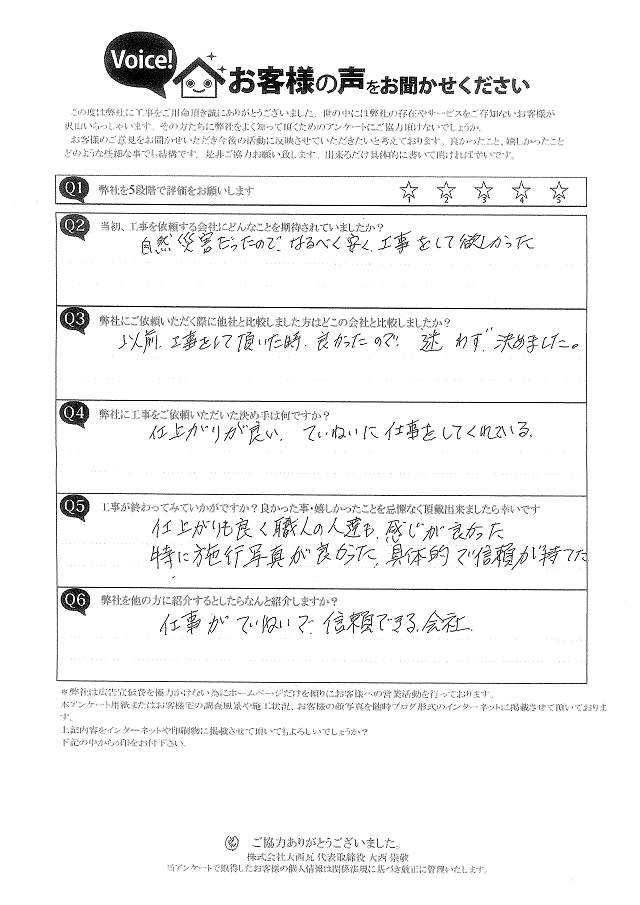 Voice!
お客様の声をお聞かせください
この度は弊社に工事をご用命頂き誠にありがとうございました。世の中には弊社の存在やサービスをご存知ないお客様が
沢山いらっしゃいます。その方たちに弊社をよく知って頂くためのアンケートにご協力頂けないでしょうか。
お客様のご意見をお聞かせいただき今後の活動に反映させていただきたいと考えております。良かったこと、嬉しかったこと
どのような些細な事でも結構です。是非ご協力お願い致します。出来るだけ具体的に書いて頂ければ幸いです。
Q1 弊社を5段階で評価をお願いします ☆1 ☆2 ☆3 ☆4 ☆5
Q2 当初、工事を依頼する会社にどんなことを期待されていましたか？
自然災害だったので なるべく安く、工事をして欲しかった
Q3 弊社にご依頼いただく際に他社と比較しました方はどこの会社と比較しましたか？
以前、工事をして頂いた時、良かったので、迷わず、決めました。
Q4 弊社に工事をご依頼いただいた決め手は何ですか？
仕上がりが良い、ていねいに仕事をしてくれている、
Q5 工事が終わってみていかがですか？良かった事・嬉しかったことを忌憚なく頂戴出来ましたら幸いです
仕上がりも良く職人の人達も、感じが良かった
特に施行写真が良かった、具体的で信頼が持てた
Q6 弊社を他の方に紹介するとしたらなんと紹介しますか？
仕事がていねいで、信頼できる、会社、
＊弊社は広告宣伝費を極力かけない為にホームページだけを頼りにお客様への営業活動を行っております。
本アンケート用紙またはお客様宅の調査風景や施工状況、お客様の顔写真を随時ブログ形式のインターネットに掲載させて頂いておりま
す。
上記内容をインターネットや印刷物に掲載させて頂いてもよろしいでしょうか？
下記の中から○印をお付下さい。
ご協力ありがとうございました。
株式会社大西瓦 代表取締役 大西 崇敬
当アンケートで取得したお客様の個人情報は関係法規に基づき厳正に管理いたします。